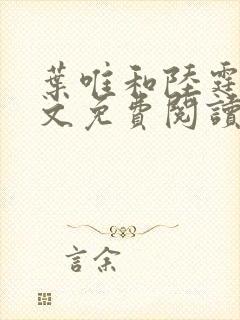 葉唯和陸霆
文免費閱讀
言余